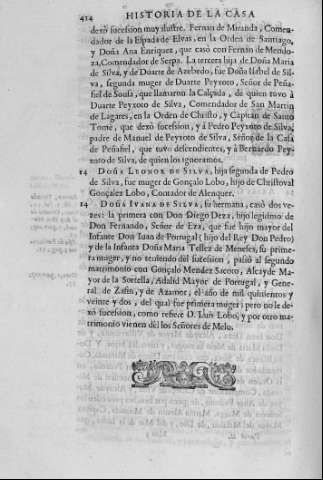 414 HISTORIA DE LA CASA
dexò sucesion muy ilustre. Fernan de Miranda, Comen-
dador de la Espada de Elvas, en la Orden de Santiago,
y Doña Ana Enriquez, que casó con Fernan de Mendo-
za, Comendador de Serpa. La tercera hija de Doña Maria
de Silva, y de Duarte de Azebedo, fue Doña Isabel de Sil-
va, segunda muger de Duarte Peyxoto, Señor de Peña-
fiel de Sousa, que llamaron la Calçada, de quien tuvo à
Duarte Peyxoto de Silva, Comendador de San Martin
de Lagares, en la Orden de Christo, y Capitan de Santo
Tomè, que dexò sucesion, y à Pedro Peyxoto de Silva,
padre de Manuel de Peyxoto de Silva, Señor de la Casa
de Peñafiel, que tuvo descendientes, y à Bernardo Pey-
xoto de Silva, de quien los ignoramos.
14 DOÑA LEONOR DE SILVA, hija segunda de Pedro
de Silva, fue muger de Gonçalo Lobo, hijo de Christoval
Gonçalez Lobo, Contador de Alenquer.
14 DOÑA IVANA DE SILVA, su hermana, casó dos ve-
zes: la primera con Don Diego Deza, hijo legitimo de
Don Fernando, Señor de Eza, que fue hijo mayor del
Infante Don Iuan de Portugal (hijo del Rey Don Pedro)
y de la Infanta Doña Maria Tellez de Meneses, su prime-
ra muger, y no teniendo del sucesion, pasió al segundo
matrimonio con Gonçalo Mendez Sacoto, Alcayde Ma-
yor de la Sortella, Adalid Mayor de Portugal, y Gene-
ral de Zafin, y de Azamor, el año de mil quinientos y
veinte y dos, del qual fue primera muger; pero no le de-
xó sucesion, como refiere D. Luis Lobo, y por otro ma-
trimonio vienen dèl los Señores de Melo.